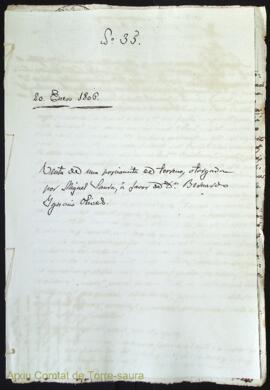 Nº 33.
20. Enero 1806.
Venta de una porcioncita de terreno, otorgada
por Miguel Saura, á favor de Dⁿ. Bernardo
Ignacio Olives.
Arxiu Comtat de Torre-saura